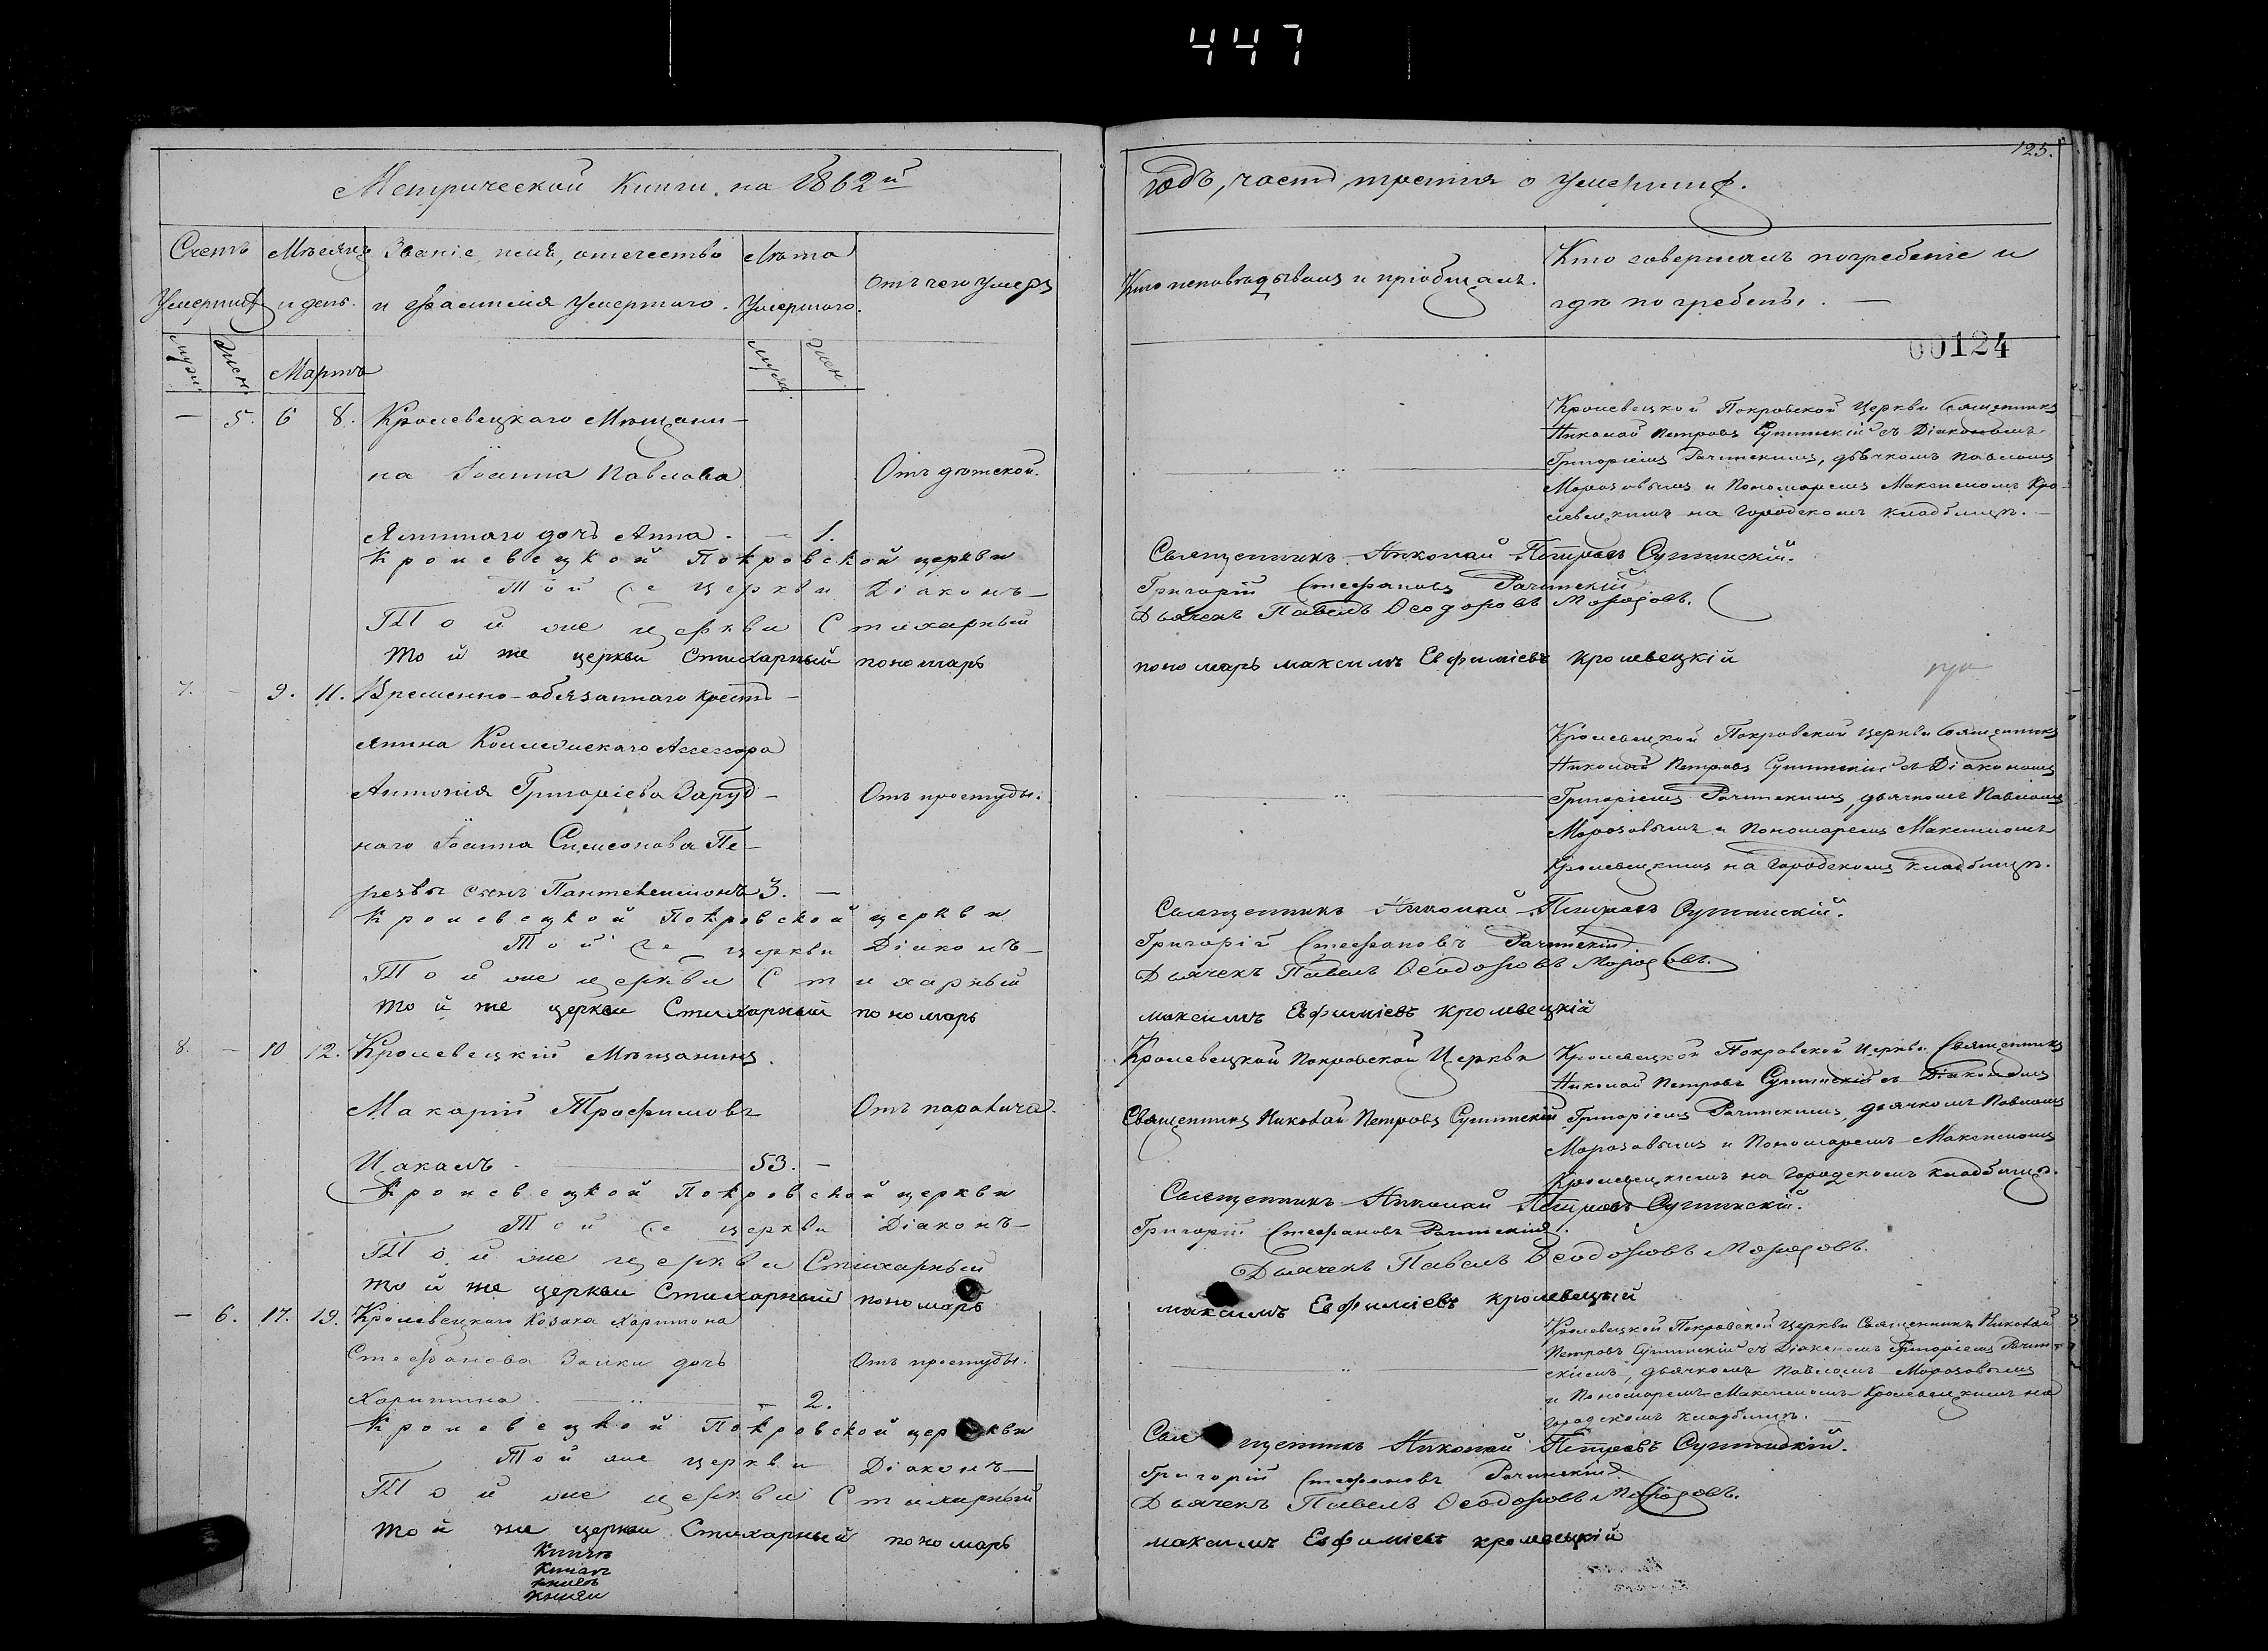 447
125.
Метрической Книги на 1862й
годъ, часть третия о умершихъ.
Счетъ умершихъ
Мѣсяцъ и день.
Званіе, имя, отечество и фамилія умершаго.
Лѣта умершаго.
Отъ чего умеръ
Кто исповѣдывалъ и пріобщалъ.
Кто совершалъ погребеніе и
гдѣ погребены. —
00124
муж. жен.
Мартъ
муж. жен.
— 5. 6 8. Кролевецкаго Мѣщани-
на Іоанна Павлова
Отъ дѣтской.
дочь Анна. — 1.
Кролевецкой Покровской Церкви Священникъ
Николай Петровъ с Діакономъ
Григоріемъ Рачинскимъ, дьячкомъ Павломъ
Морозовымъ и Пономаремъ Максимомъ Кро-
левецкимъ на городскомъ кладбищѣ. —
Кролевецкой Покровской церкви Священникъ Николай Петровъ
Той же церкви Діаконъ— Григорій Стефановъ Рачинскій
Той же церкви Стихарный Дьячекъ Павелъ Ѳеодоровъ Морозовъ.
той же церкви Стихарный пономарь пономарь максимъ Евфиміевъ кролевецкій
7. — 9. 11. Временно-обязаннаго крестъ-
янина Коллежскаго Ассессора
Антонія Григоріева Заруд-
наго Іоанна Симеонова Пе-
резвы сынъ Пантелеимонъ 3. —
Отъ простуды.
Кролевецкой Покровской Церкви Священникъ
Николай Петровъ съ Діакономъ
Григоріемъ Рачинскимъ, дьячкомъ Павломъ
Морозовымъ и Пономаремъ Максимомъ
Кролевецкимъ на городскомъ кладбищѣ.
Кролевецкой Покровской церкви Священникъ Николай Петровъ
Той же церкви Діаконъ— Григорій Стефановъ Рачинскій
Той же церкви Стихарный Дьячекъ Павелъ Ѳеодоровъ Морозовъ.
той же церкви Стихарный пономарь максимъ Евфиміевъ кролевецкій
8. — 10 12. Кролевецкій Мѣщанинъ
Макарій Трофимовъ
Цакалъ. 53. —
Отъ паралича.
Кролевецкой Покровской Церкви
Священникъ Николай Петровъ
Кролевецкой Покровской Церкви Священникъ
Николай Петровъ съ Діакономъ
Григоріемъ Рачинскимъ, дьячкомъ Павломъ
Морозовымъ и Пономаремъ Максимомъ
Кролевецкимъ на городскомъ кладбищѣ.
Кролевецкой Покровской церкви Священникъ Николай Петровъ
Той же церкви Діаконъ— Григорій Стефановъ Рачинскій.
Той же церкви Стихарный Дьячекъ Павелъ Ѳеодоровъ Морозовъ.
той же церкви Стихарный пономарь максимъ Евфиміевъ кролевецкій
— 6. 17. 19. Кролевецкаго Козака Харитона
Стефанова Заики дочь
Харитина. — 2.
Отъ простуды.
Кролевецкой Покровской Церкви Священникъ Николай
Петровъ съ Діакономъ Григоріемъ Рачин-
скимъ, дьячкомъ Павломъ Морозовымъ
и Пономаремъ Максимомъ Кролевецкимъ на
городскомъ кладбищѣ. —
Кролевецкой Покровской церкви Священникъ Николай Петровъ
Той же церкви Діаконъ— Григорій Стефановъ Рачинскій
Той же церкви Стихарный Дьячекъ Павелъ Ѳеодоровъ Морозовъ.
той же церкви Стихарный пономарь максимъ Евфиміевъ кролевецкій
книги